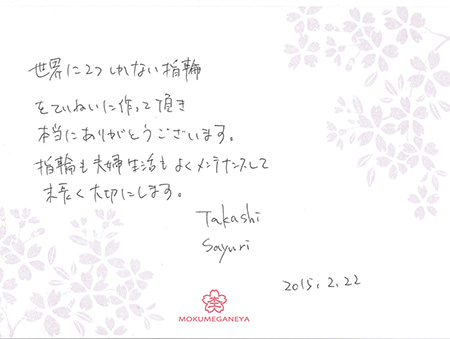 世界に2つしかない指輪
をていねいに作って頂き
本当にありがとうございます。
指輪も夫婦生活もよくメンテナンスして
末長く大切にします。
Takashi
Sayuri
2015.2.22
MOKUMEGANEYA